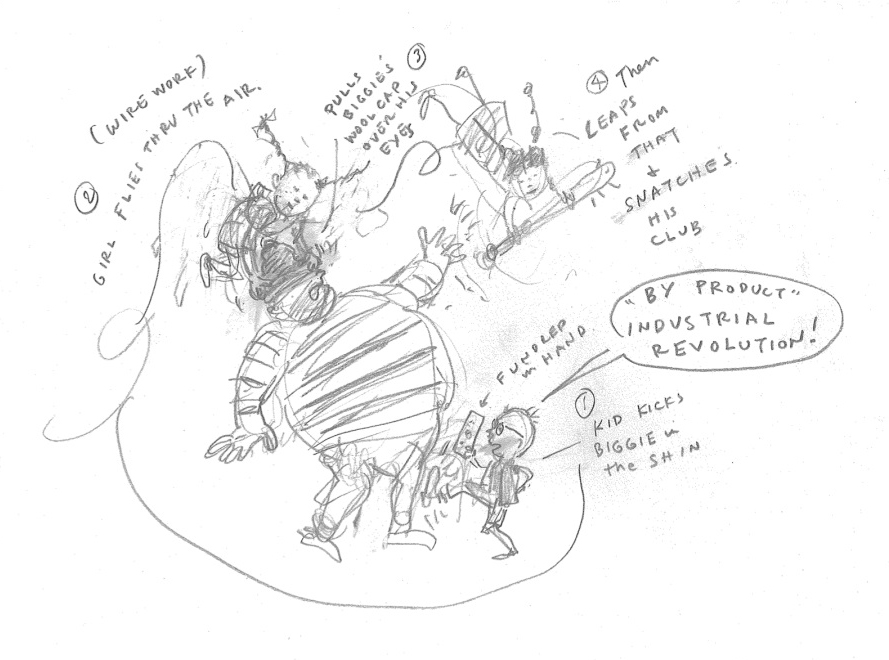 ①
KID KICKS
BIGGIE in
the SHIN
"BY PRODUCT"
INDUSTRIAL
REVOLUTION!
in HAND.
②
(WIRE WORK)
GIRL FLIES THRU THE AIR.
③
PULLS
BIGGIES'
WOOL CAP
OVER HIS
EYES
④ Then
LEAPS
FROM
THAT
+
SNATCHES
HIS
CLUB